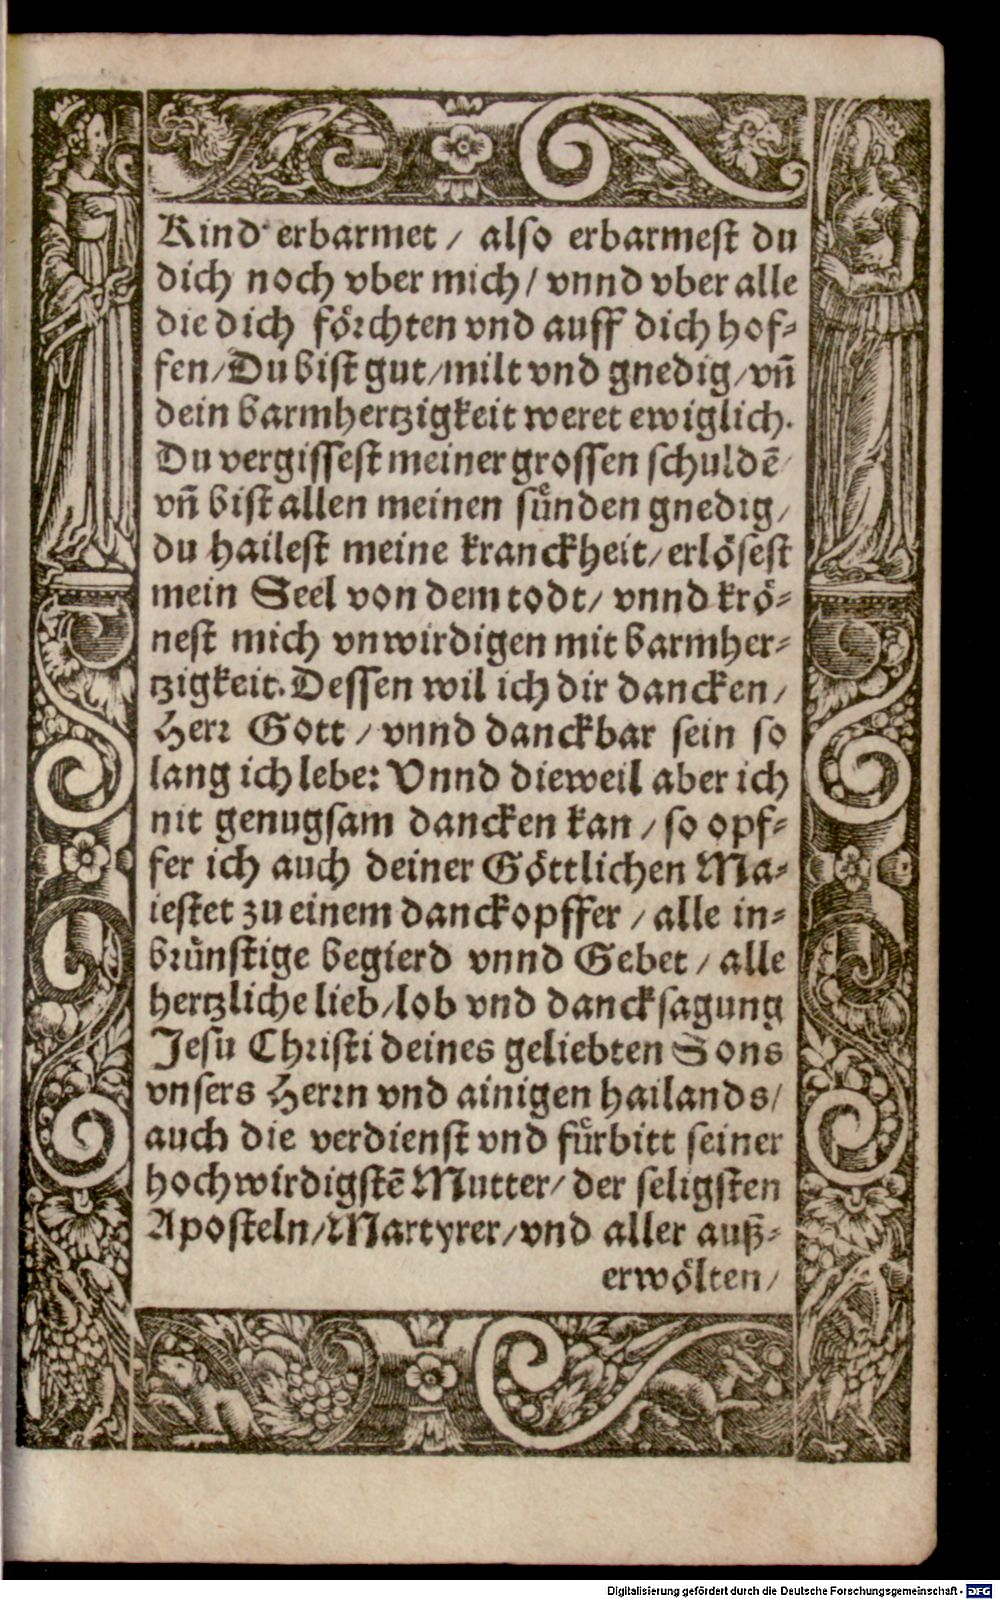 Kind erbarmet / also erbarmest du
dich noch vber mich / vnnd vber alle
die dich förchten vnd auff dich hof-
fen / Du bist gut / milt vnd gnedig / vñ
dein barmhertzigkeit weret ewiglich.
Du vergissest meiner grossen schuldē /
vñ bist allen meinen sünden gnedig /
du hailest meine kranckheit / erlösest
mein Seel von dem todt / vnnd krö-
nest mich vnwirdigen mit barmher-
tzigkeit. Dessen wil ich dir dancken /
Herr Gott / vnnd danckbar sein so
lang ich lebe: Vnnd dieweil aber ich
nit genugsam dancken kan / so opf-
fer ich auch deiner Göttlichen Ma-
iestet zu einem danckopffer / alle in-
brünstige begierd vnnd Gebet / alle
hertzliche lieb / lob vnd dancksagung
Jesu Christi deines geliebten Sons
vnsers Herrn vnd ainigen hailands /
auch die verdienst vnd fürbitt seiner
hochwirdigstē Mutter / der seligsten
Aposteln / Martyrer / vnd aller auß-
erwölten /
Digitalisierung gefördert durch die Deutsche Forschungsgemeinschaft - DFG